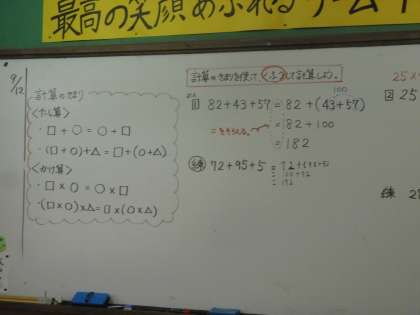 最高の笑顔あふれるチーム
9/12
計算のきまり
<たし算>
・□+○=○+□
・(□+○)+△=□+(○+△)
<かけ算>
・□×○=○×□
・(□×○)×△=□×(○×△)
計算のきまりを使って、くふうして計算しよう。
100
1 82+43+57=82+(43+57)
=82+100
=182
練 72+95+5=72+(95+5)
25×
2 25
練